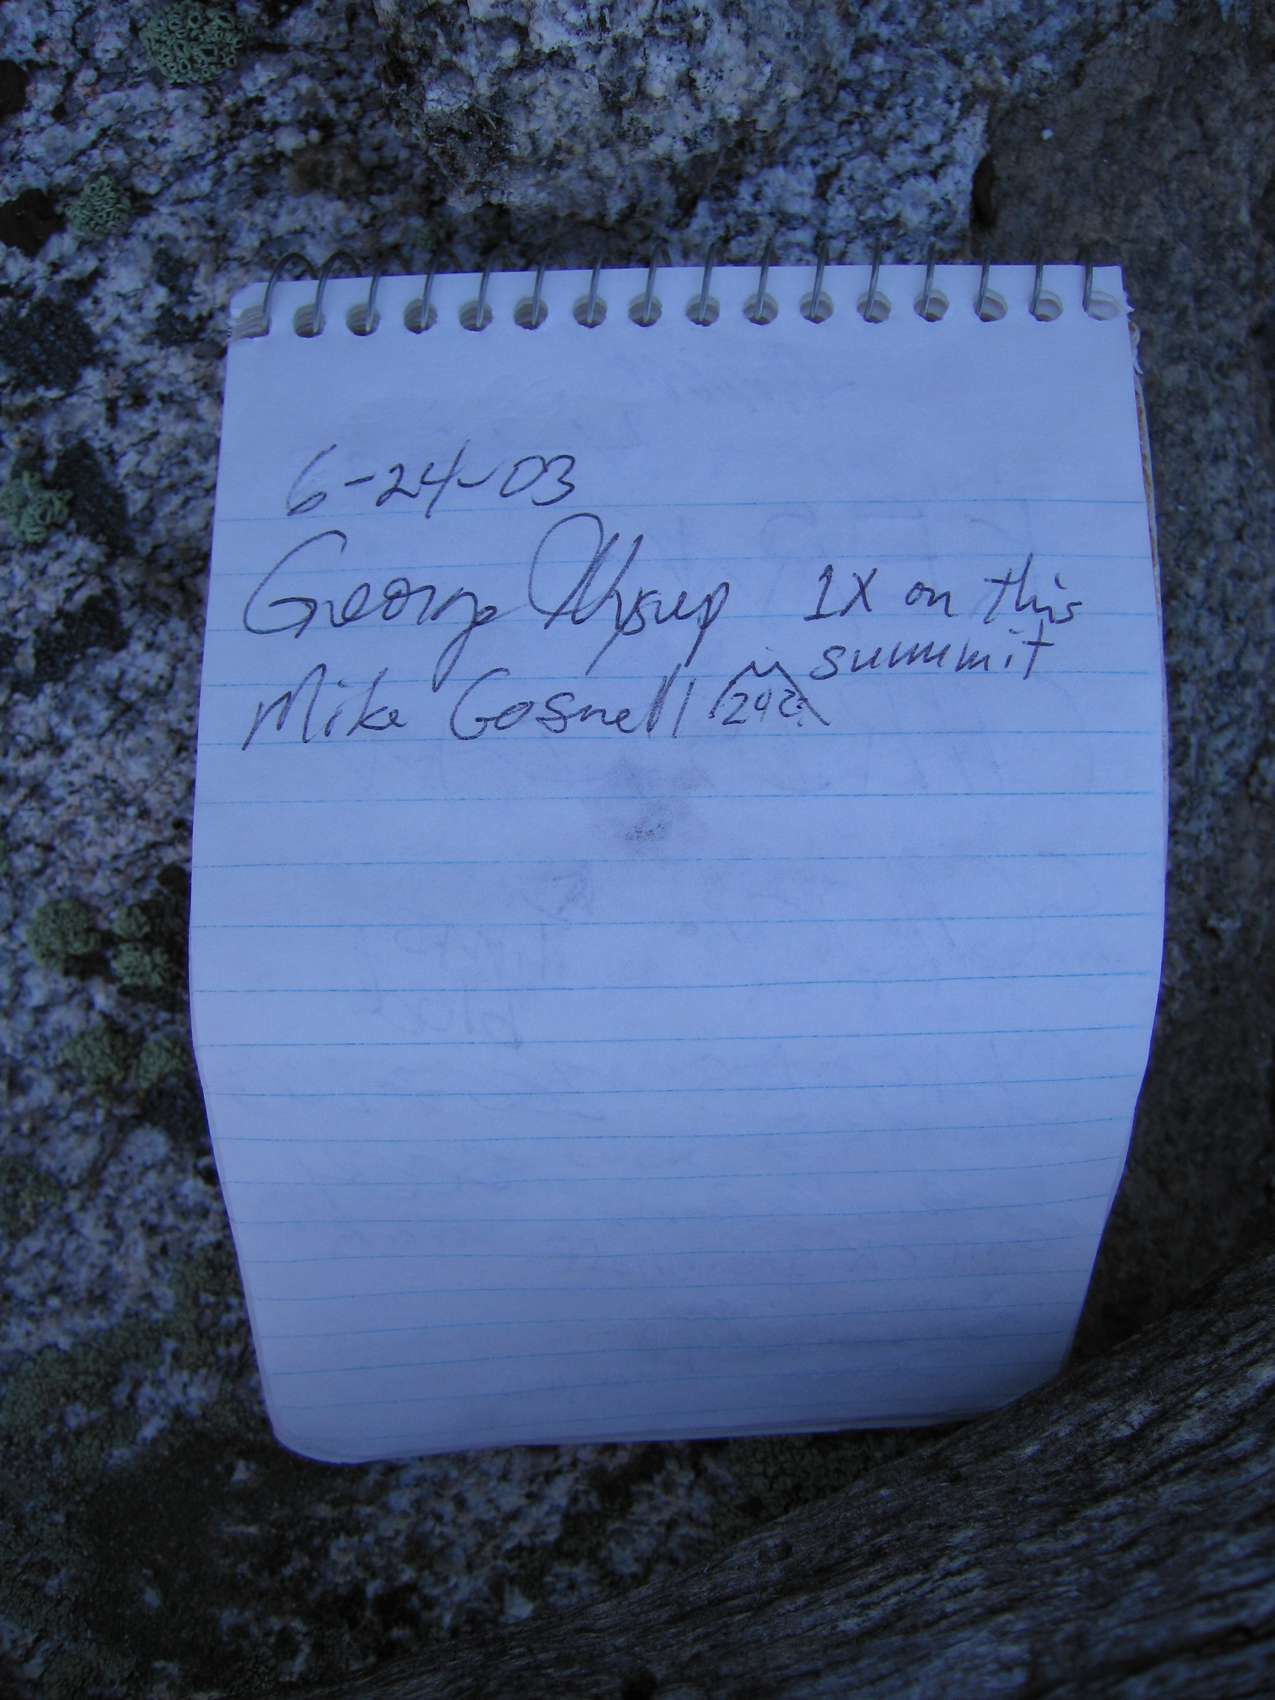 6-24-03
George 1X on this
summit
Mike Gosnell